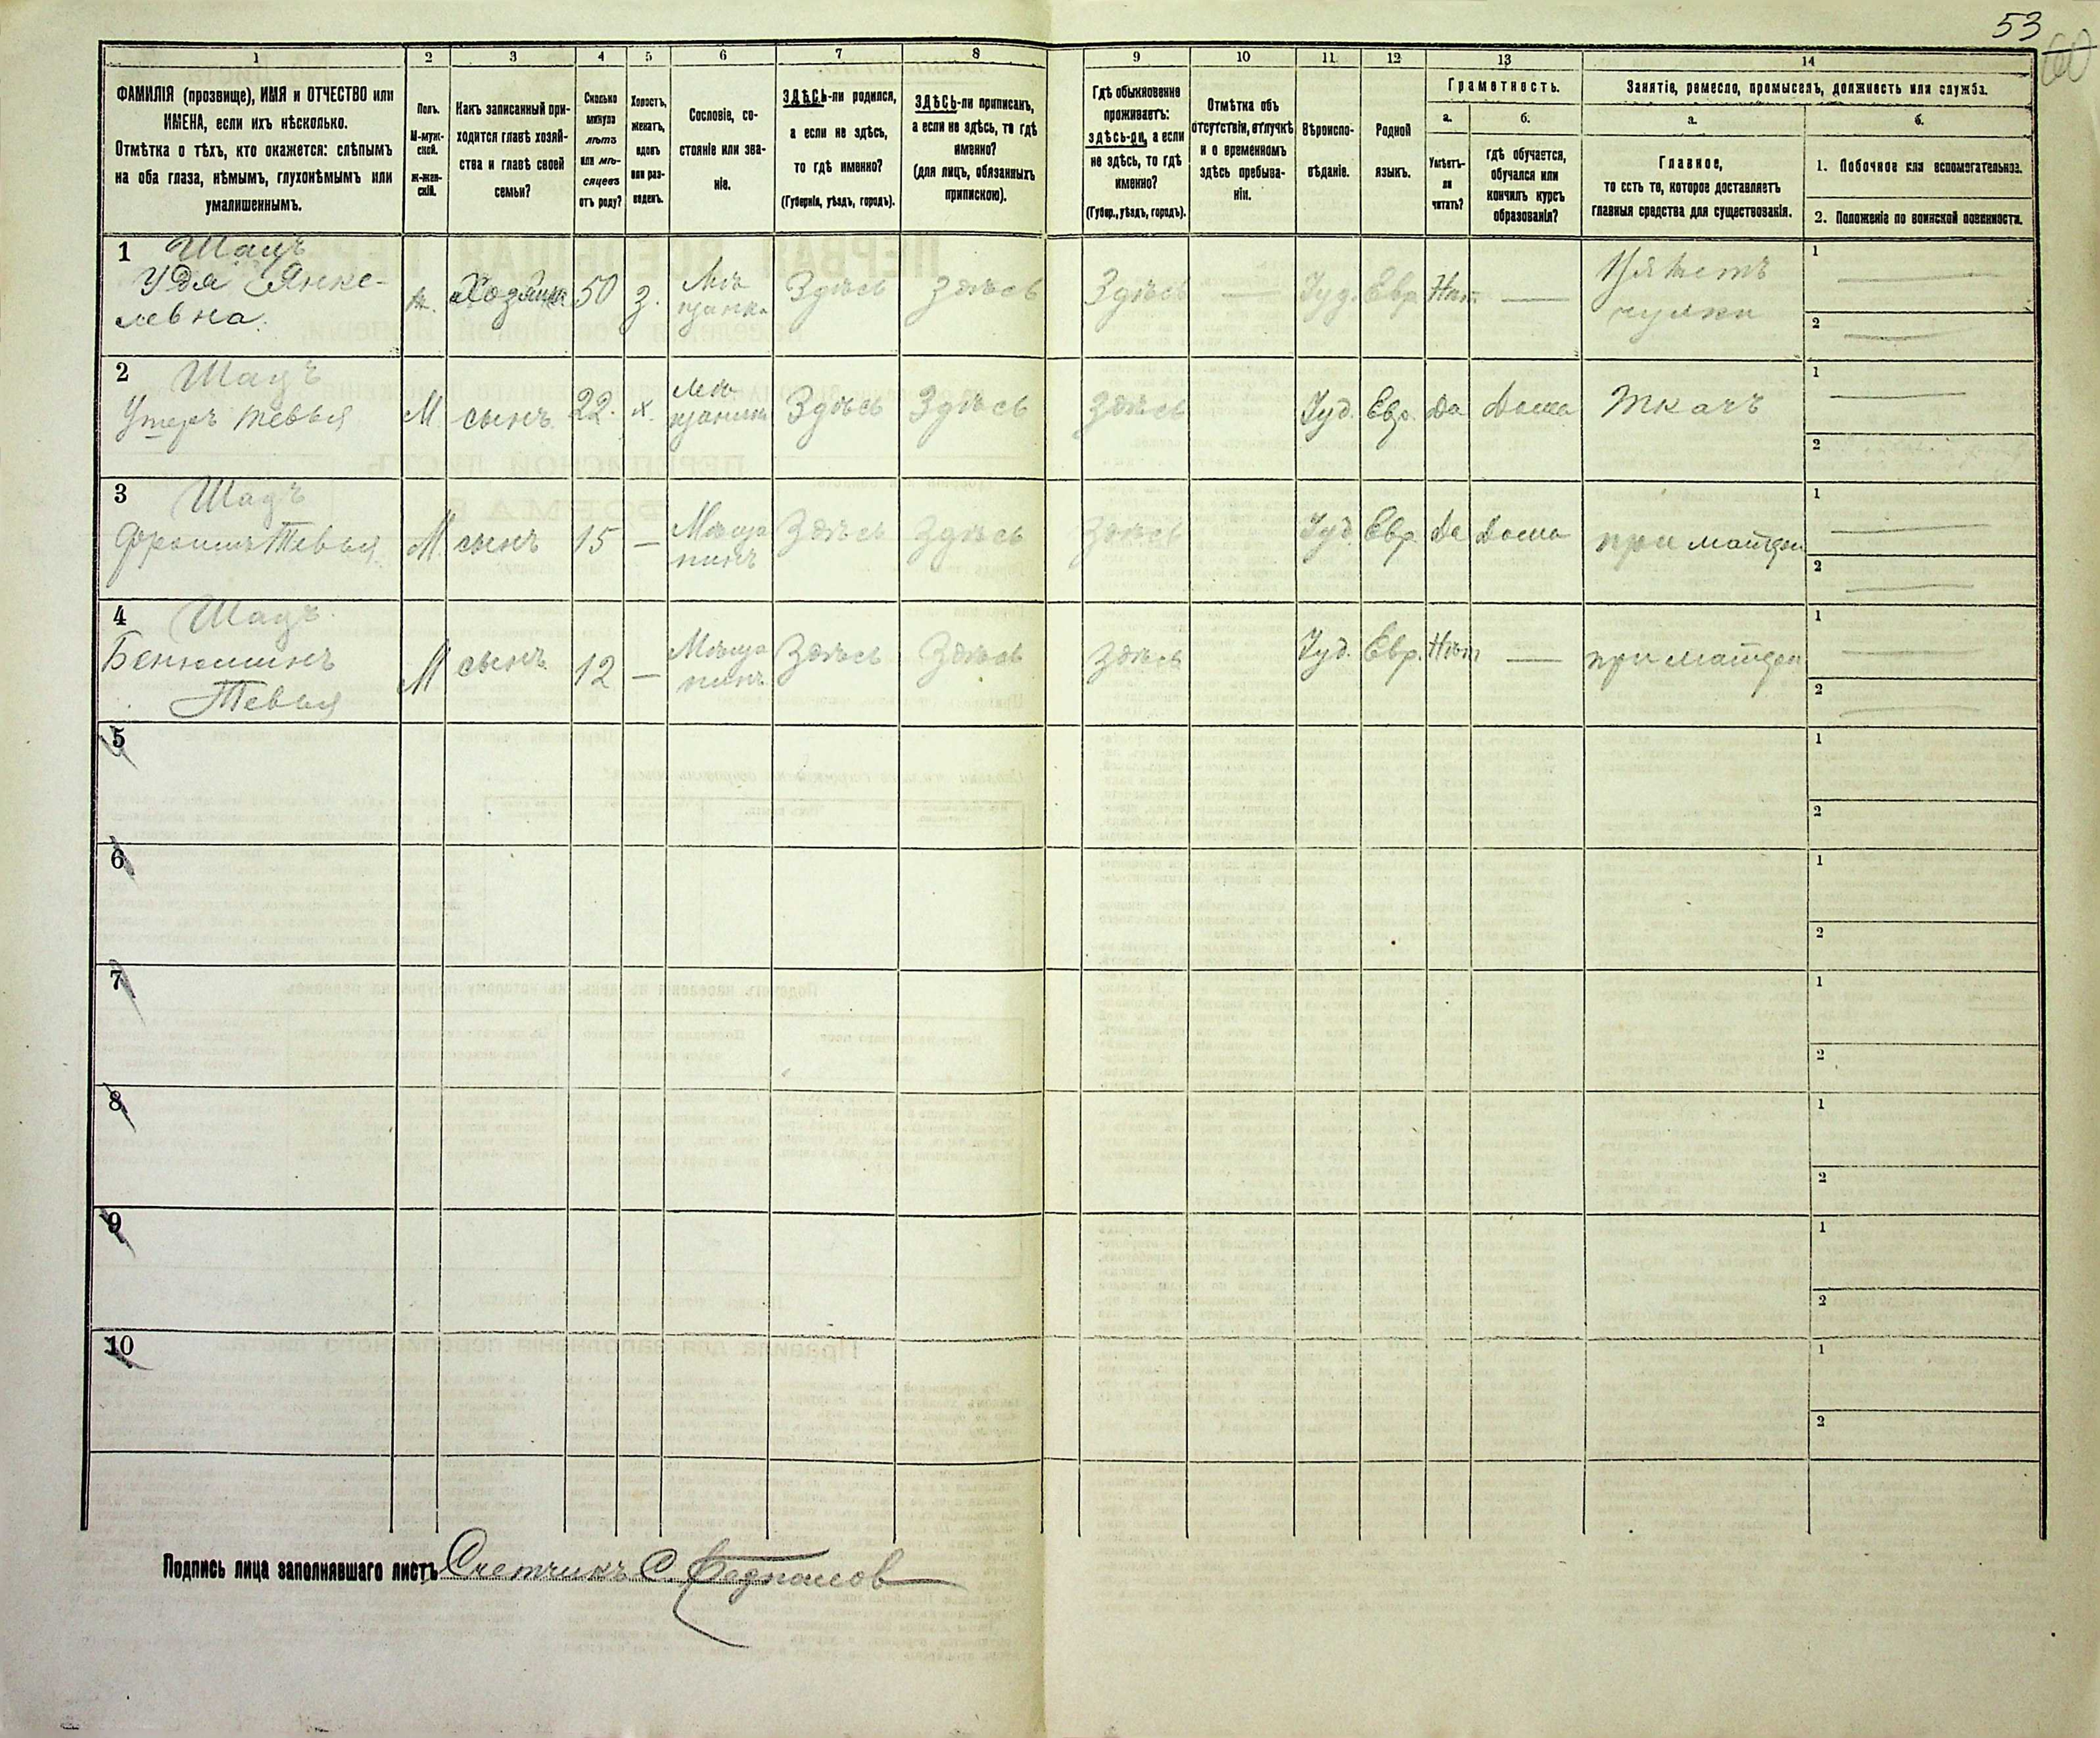 53
60
1
2
3
4
5
6
7
8
9
10
11
12
13
14
ФАМИЛІЯ (прозвище), ИМЯ и ОТЧЕСТВО или
ИМЕНА, если ихъ нѣсколько.
Отмѣтка о тѣхъ, кто окажется: слѣпымъ
на оба глаза, нѣмымъ, глухонѣмымъ или
умалишеннымъ.
Полъ.
М-муж-
ской.
ж-жен-
скій.
Какъ записанный при-
ходится главѣ хозяй-
ства и главѣ своей
семьи?
Сколько
минуло
лѣтъ
или мѣ-
сяцевъ
отъ роду?
Холостъ,
женатъ,
вдовъ
или раз-
веденъ.
Сословіе, со-
стояніе или зва-
ніе.
ЗДѢСЬ-ли родился,
а если не здѣсь,
то гдѣ именно?
(Губернія, уѣздъ, городъ).
ЗДѢСЬ-ли приписанъ,
а если не здѣсь, то гдѣ
именно?
(для лицъ, обязанныхъ
припискою).
Гдѣ обыкновенно
проживаетъ:
здѣсь-ли, а если
не здѣсь, то гдѣ
именно?
(Губер., уѣздъ, городъ).
Отмѣтка объ
отсутствіи, отлучкѣ
и о временномъ
здѣсь пребыва-
ніи.
Вѣроиспо-
вѣданіе.
Родной
языкъ.
Грамотность.
а.
б.
Умѣетъ-
ли
читать?
гдѣ обучается,
обучался или
кончилъ курсъ
образованія?
Занятіе, ремесло, промыселъ, должность или служба.
а.
б.
Главное,
то есть то, которое доставляетъ
главныя средства для существованія.
1. Побочное или вспомогательное.
2. Положеніе по воинской повинности.
1 Шацъ
Удя Янке-
левна.
ж. Хозяйка 50 з. Мѣ
щанка Здѣсь Здѣсь Здѣсь — Іуд. Евр. Нѣт — Вяжетъ
чулки
1 —
2 —
2 Шацъ
Тевья М. сынъ 22. х. Мѣ
щанинъ Здѣсь Здѣсь Здѣсь Іуд. Евр. Да Дома Ткачъ
1 —
2
3 Шацъ
Тевья М. сынъ 15 — Мѣща
нинъ Здѣсь Здѣсь Здѣсь Іуд. Евр. Да Дома при матери
1 —
2 —
4 Шацъ
Беньминъ
Тевья
М сынъ 12 — Мѣща
нинъ Здѣсь Здѣсь Здѣсь Іуд. Евр. Нѣт — при матери
1 —
2 —
5
1
2
6
1
2
7
1
2
8
1
2
9
1
2
10
1
2
Подпись лица заполнявшаго листъ Счетчикъ С.